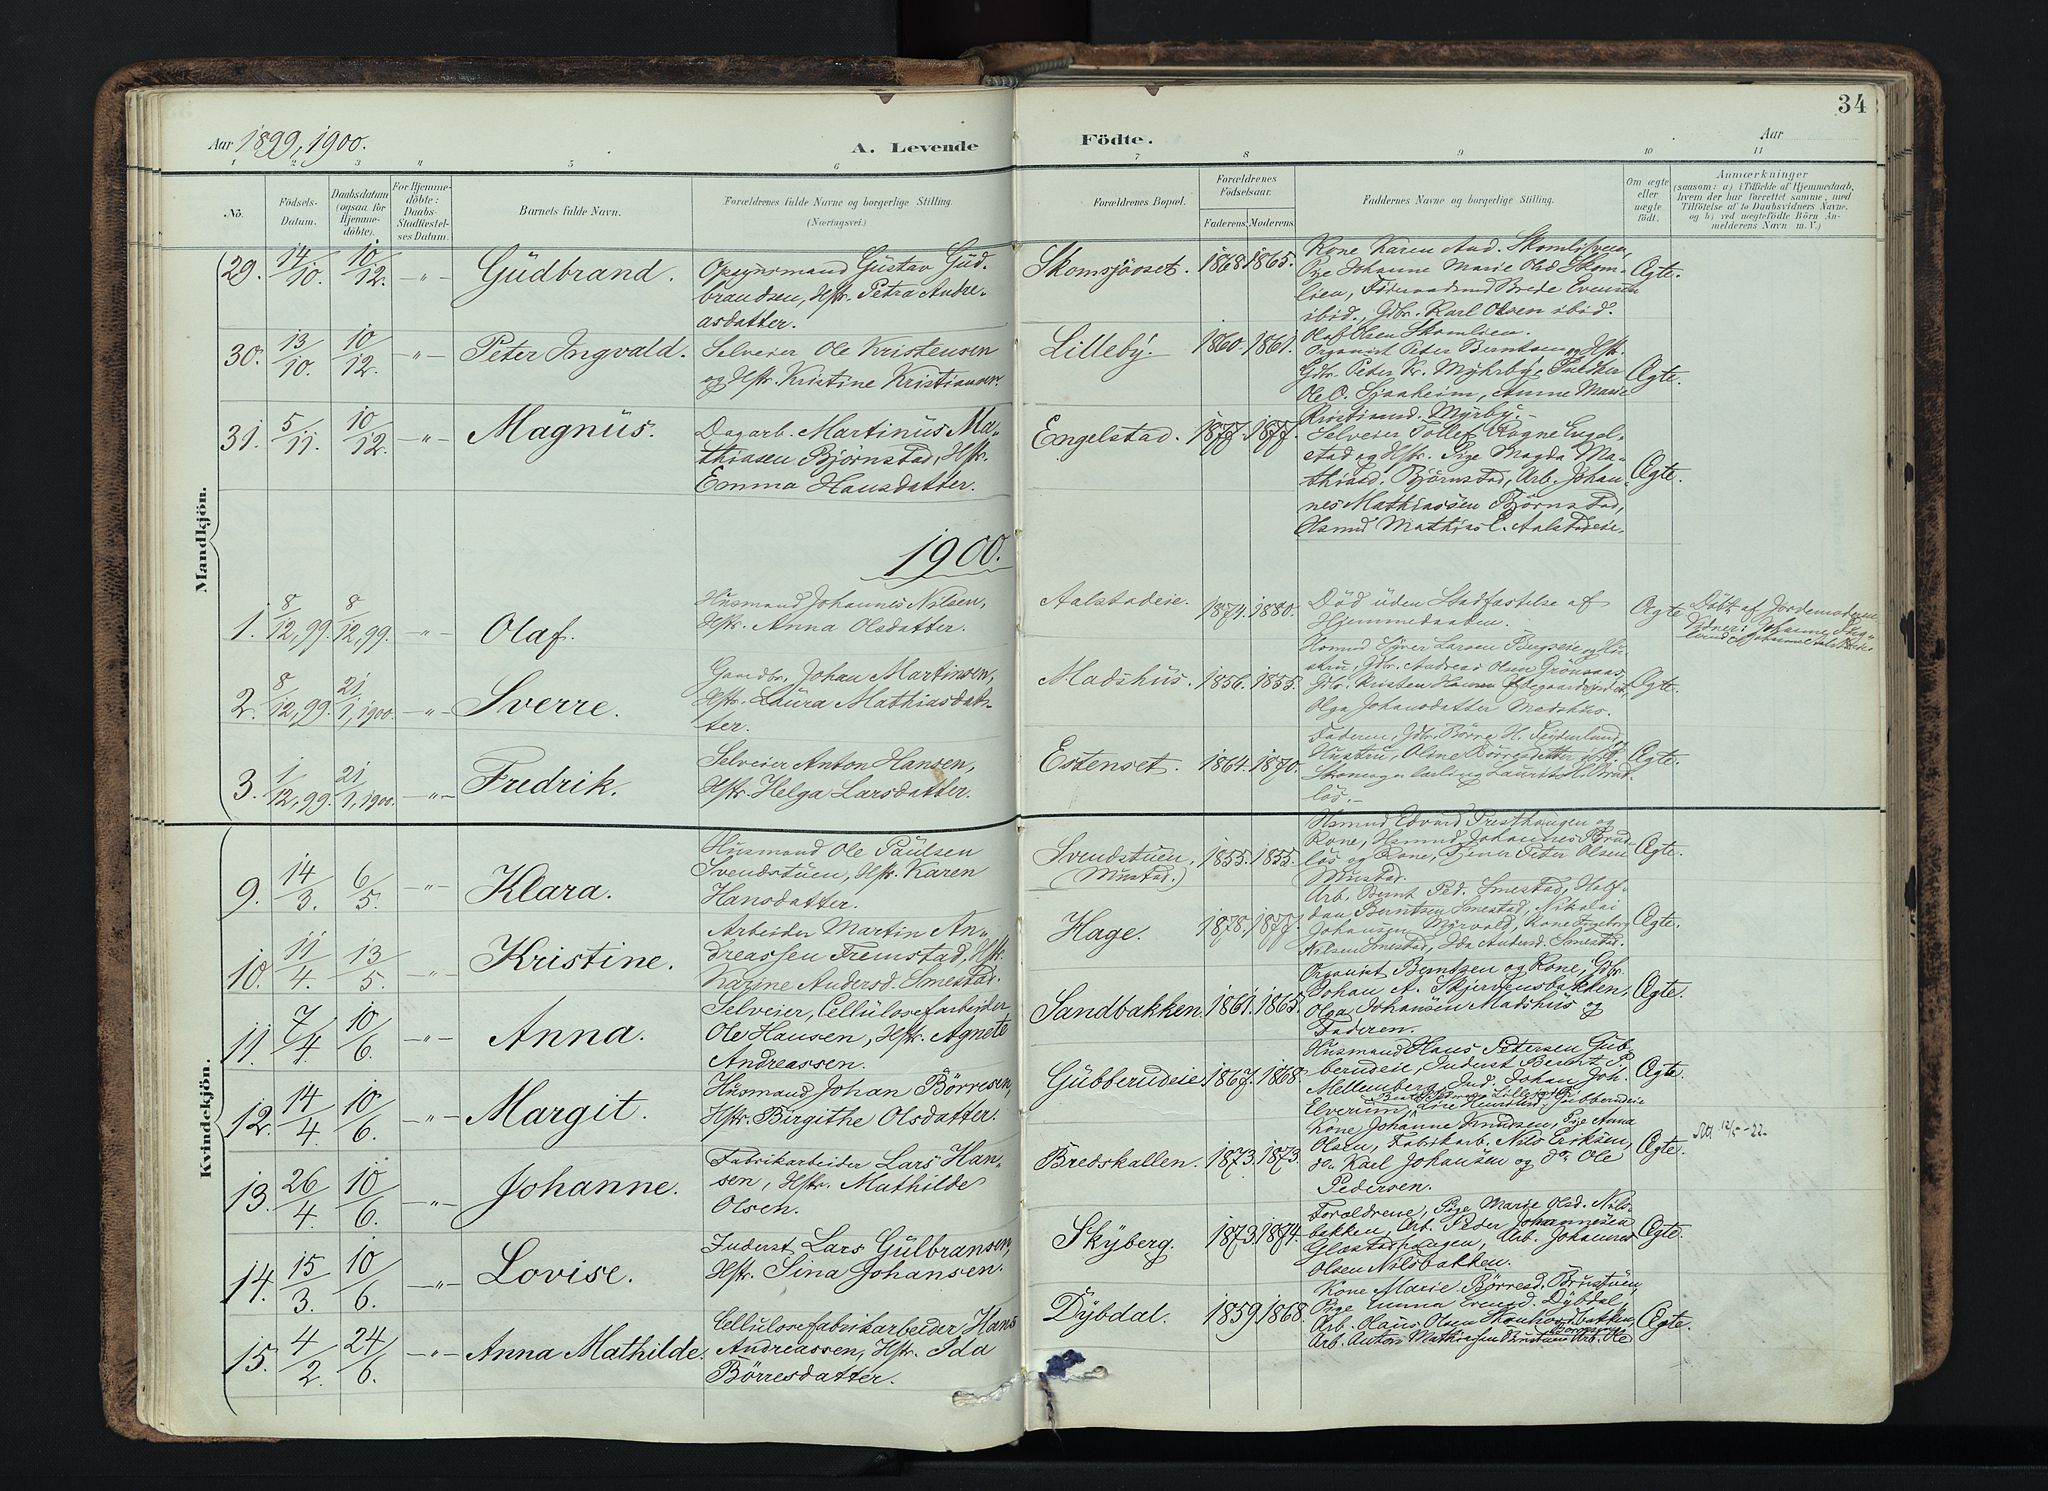 34
Aar 1899, 1900.
A. Levende
Födte.
Aar
1 2 3 " 5 6 7 8 9 10 11
No.
Födsels-
Datum.
Daabsdatum
(ogsaa for
Hjemme-
döbte).
For Hjemme-
döbte:
Daabs-
Stadfæstel-
ses Datum.
Barnets fulde Navn.
Forældrenes fulde Navne og borgerlige Stilling
(Næringsvei.)
Forældrenes Bopæl.
Forældrenes
Födselsaar.
Faderens. Moderens.
Faddernes Navne og borgerlige Stilling.
Om ægte
eller
uægte
födt.
Anmærkninger
(saasom: a) i Tilfælde af Hjemmedaab,
hvem der har forrettet samme, med
Tilföielse af to Daabsvidners Navne.
og b) ved uegtefödte Börn An-
melderens Navn m. V.)
Mandkjön.
29. 14/10. 10/12. —"— Gudbrand.
Opsynsmand Gustav Gud-
brandsen, Hstr. Petra Andre-
asdatter.
Skomsjöoset. 1868. 1865.
Kone Karen And. Skomlisveien,
Pige Johanne Marie Olsd. Skom-
lien, Brede Evensen
ibid., Gdbr. Karl Olsen ibid.
Olaf Olsen Skomlien.
Ægte.
30. 13/10. 10/12. —"— Peter Ingvald.
Selveier Ole Kristensen
og Hstr. Kristine Kristiansen.
Lilleby. 1860. 1861.
Organist Peter Berntsen og Hstr.
Gdbr. Peter Kr. Myhrby,
Ole O. Sjaaheim, Anne Marie
Kristiansd. Myrby.
Ægte.
31. 5/11. 10/12. —"— Magnus.
Dagarb. Martinus Ma-
thiasen Björnstad, Hstr.
Emma Hansdatter.
Engelstad. 1877. 1877.
Selveier Tollef Rogne Engel-
stad og Hstr. Pige Magda Ma-
thiasd. Björnstad, Arb. Johan-
nes Mathiassen Björnstad,
Husmd Mathias E. Aalstadeie.
Ægte.
1900.
1. 8/12,99. 8/12,99. —"— Olaf.
Husmand Johannes Nilsen,
Hstr. Anna Olsdatter.
Aalstadeie. 1874. 1880.
Död uden Stadfæstelse af
Hjemmedaaben.
Ægte
Döbt af Jordemoderen,
Vidner: Johanne
2. 8/12,99. 21/1,1900. —"— Sverre.
Gaardbr. Johan Martinsen,
Hstr. Laura Mathiasdat-
ter.
Madshus. 1856. 1855.
Husmd Syver Larsen Bergseie og Hu-
stru, Gdbr. Andreas Olsen Grönaas,
Gdbr. Kristen Hansen
Olga Johansdatter Madshus.
Ægte.
3. 1/12,99. 21/1,1900. —"— Fredrik.
Selveier Anton Hansen,
Hstr. Helga Larsdatter.
Estenset. 1864. 1870.
Faderen, Gdbr. Börre H.
Hustru, Oline Börresdatter
Ægte.
Kvindekjön.
9. 14/3. 6/5. —"— Klara.
Husmand Ole Paulsen
Svendstuen, Hstr. Karen
Hansdatter.
Svendstuen, 1855. 1855.
(Mustad.)
Husmd Edvard Tresthaugen og
Kone, Husmd Johannes Brud-
lös og Kone, Tjener Peter Olsen
Mustad.
Ægte.
10. 11/4. 13/5. —"— Kristine.
Arbeider Martin An-
dreassen Fremstad, Hstr.
Karine Andersd. Smestad.
Hage. 1878. 1877.
Arb. Bernt Ped. Smestad, Half-
dan Berntsen Smestad, Nikolai
Johansen Myrvold, Kone Ingeborg
Nilsen Smestad, Ida Andersd. Smestad.
Ægte.
11. 7/4. 10/6. —"— Anna.
Selveier, Cellulosefarbeider
Ole Hansen, Hstr. Agnete
Andreassen.
Sandbakken. 1861. 1865.
Organist Berntsen og Kone, Gdbr.
Johan A. Skjervensbakken,
Olga Johansen Madshus og
Faderen.
Ægte.
12. 14/4. 10/6. —"— Margit.
Husmand Johan Börresen,
Hstr. Birgithe Olsdatter.
Gubberudeie. 1867. 1868.
Husmand Hans Petersen Gub-
berudeie, Inderst Bernt P.
Mellemberg, Ind. Johan Joh.
Elverum, Gubberudeie
Ægte.
13. 26/4. 10/6. —"— Johanne.
Fabrikarbeider Lars Han-
sen, Hstr. Mathilde
Olsen.
Bredskallen. 1873. 1873.
Kone Johanne Knudsen, Pige Anna
Olsen, Fabrikarb. Nils Eriksen,
do. Karl Johansen og do. Ole
Pedersen.
Ægte.
Att 12/5-22
14. 15/3. 10/6. —"— Lovise.
Inderst Lars Gulbransen,
Hstr. Sina Johansen.
Skyberg. 1873. 1874.
Forældrene, Pige Marie Olsd. Nils-
bakken, Arb. Peder Johannesen
Glæstadhaugen, Arb. Johannes
Olsen Nilsbakken.
Ægte.
15. 4/2. 24/6. —"— Anna Mathilde.
Cellulosefabrikarbeider Hans
Andreassen, Hstr. Ida
Börresdatter.
Dybdal. 1859. 1868.
Kone Marie Börresd. Brustuen,
Pige Emma Evensd. Dybdal
Arb. Olaus Olsen
Arb. Anton Mathiesen Brustuen Arb. Ole
Ægte.